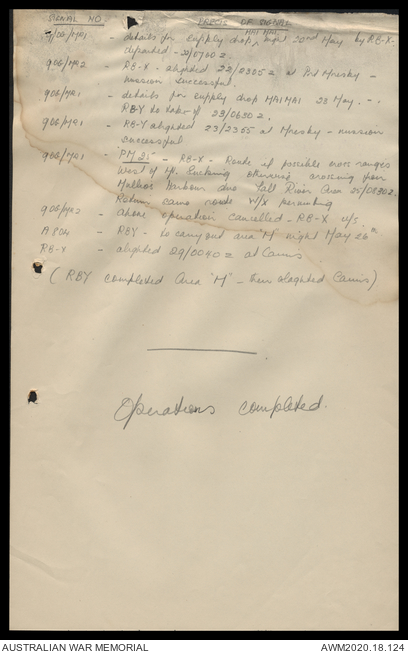 SIGNAL NO. PRECIS OF SIGNAL
MAI MAI
906/MA1 - details for supply drop, night 22nd May by RB-X
departed - 22/0760Z.
906/MA2 - RB-X - alighted 22/2305Z at Pt Moresby -
mission successful.
906/MA1 - details for supply drop MAIMAI 23 May. - .
RBY to take off 23/0630Z.
906/MA1 - RB-Y alighted 23/2355 at Moresby - mission
successful
906/MA1 - "PM 25" - RB-X - Route if possible over ranges
West of Mt. otherwise crossing from
Harbour due Fall River Area 25/0830Z.
Return same route W/X permitting
906/MA2 - above operation cancelled - RB-X u/s
A 804 - RBY - to carry out area "M" night May 26th
RB-X - alighted 29/0040Z at Cairns
(RBY completed Area "M" - then alighted Cairns)
Operations completed.
AUSTRALIAN WAR MEMORIAL AWM2020.18.124